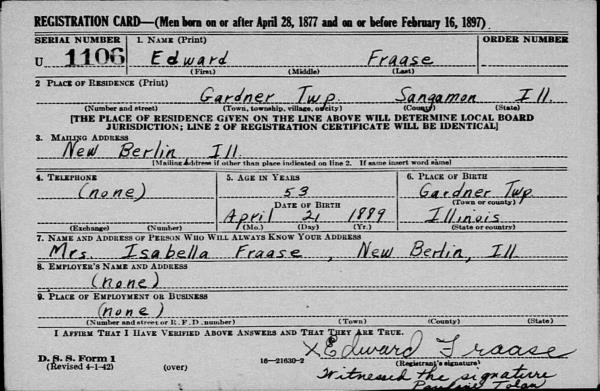 REGISTRATION CARD—(Men born on or after April 28, 1877 and on or before February 16, 1897)
SERIAL NUMBER 1. NAME (Print) ORDER NUMBER
U 1106 Edward Fraase
(First) (Middle) (Last)
2 PLACE OF RESIDENCE (Print)
Gardner Twp. Sangamon Ill.
(Number and street) (Town, township, village, or city) (County) (State)
[THE PLACE OF RESIDENCE GIVEN ON THE LINE ABOVE WILL DETERMINE LOCAL BOARD
JURISDICTION; LINE 2 OF REGISTRATION CERTIFICATE WILL BE IDENTICAL]
3. MAILING ADDRESS
New Berlin Ill.
[Mailing address if other than place indicated on line 2. If same insert word same]
4. TELEPHONE 5. AGE IN YEARS 6. PLACE OF BIRTH
(none) 53 Gardner Twp
DATE OF BIRTH (Town or county)
April 21 1889 Illinois
(Exchange) (Number) (Mo.) (Day) (Yr.) (State or country)
7. NAME AND ADDRESS OF PERSON WHO WILL ALWAYS KNOW YOUR ADDRESS
Mrs. Isabella Fraase, New Berlin, Ill
8. EMPLOYER'S NAME AND ADDRESS
(none)
9. PLACE OF EMPLOYMENT OR BUSINESS
(none)
(Number and street or R. F. D. number) (Town) (County) (State)
I AFFIRM THAT I HAVE VERIFIED ABOVE ANSWERS AND THAT THEY ARE TRUE.
X Edward Fraase
D. S. S. Form 1 16—21630-2 (Registrant's signature)
(Revised 4-1-42) (over) Witnessed the signature
Pauline